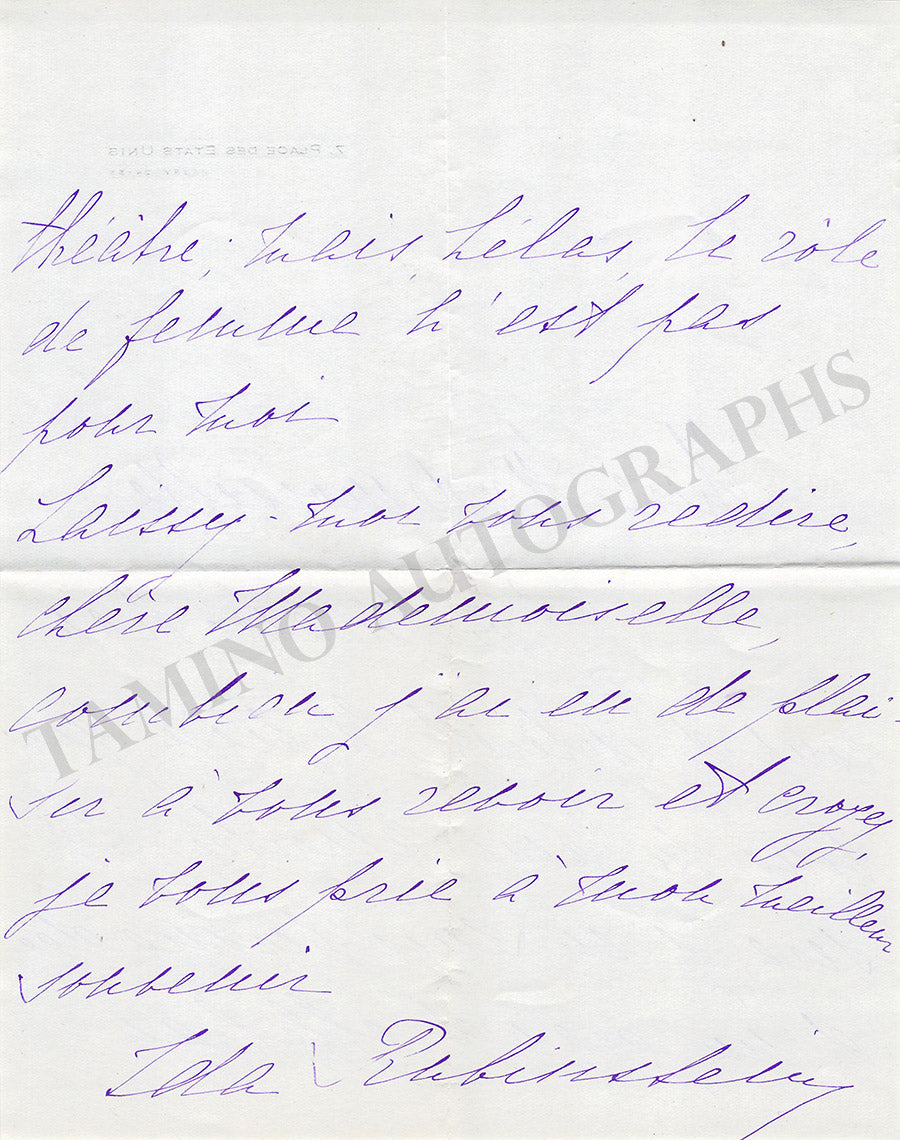 7, PLACE DES ETATS UNIS
théâtre; mais, hélas, le rôle
de femme n'est pas
pour moi
Laissez-moi vous redire,
chère Mademoiselle,
combien j'ai eu de plai-
sir à vous revoir et croyez,
je vous prie à mon meilleur
souvenir
Ida Rubinstein
TAMINO AUTOGRAPHS